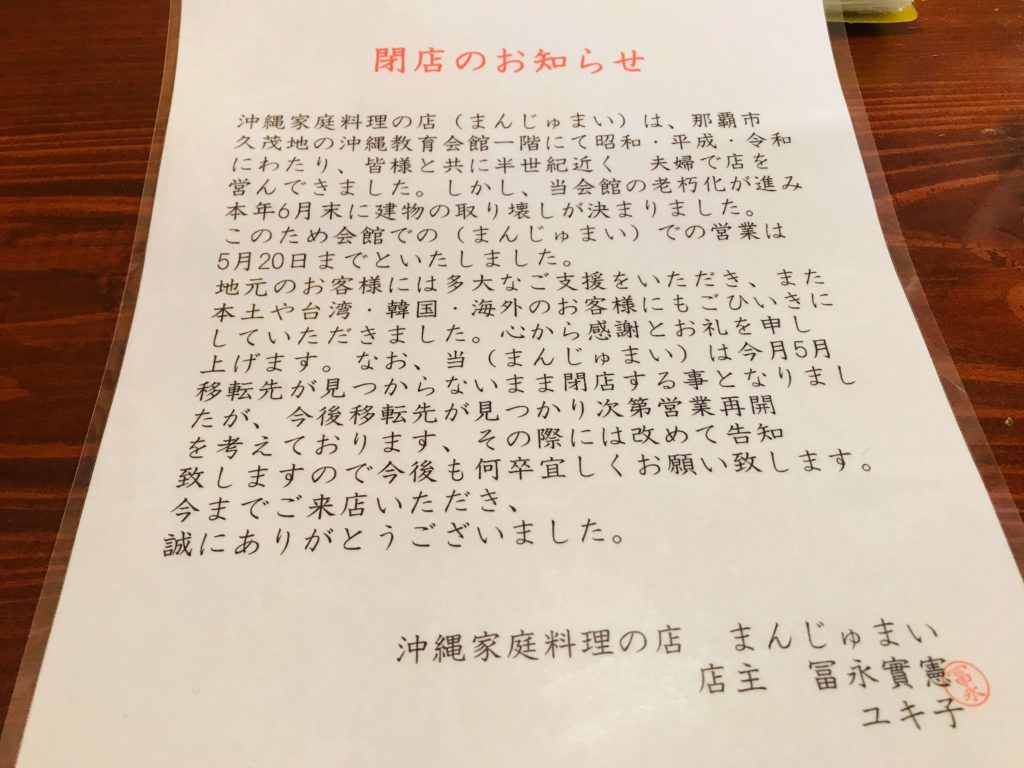 閉店のお知らせ
沖縄家庭料理の店（まんじゅまい）は、那覇市
久茂地の沖縄教育会館一階にて昭和・平成・令和
にわたり、皆様と共に半世紀近く　夫婦で店を
営んできました。しかし、当会館の老朽化が進み
本年6月末に建物の取り壊しが決まりました。
このため会館での（まんじゅまい）での営業は
5月20日までといたしました。
地元のお客様には多大なご支援をいただき、また
本土や台湾・韓国・海外のお客様にもごひいきに
していただきました。心から感謝とお礼を申し
上げます。なお、当（まんじゅまい）は今月5月
移転先が見つからないまま閉店する事となりまし
たが、今後移転先が見つかり次第営業再開
を考えております、その際には改めて告知
致しますので今後も何卒宜しくお願い致します。
今までご来店いただき、
誠にありがとうございました。
沖縄家庭料理の店　まんじゅまい
店主　冨永實憲
冨永
ユキ子